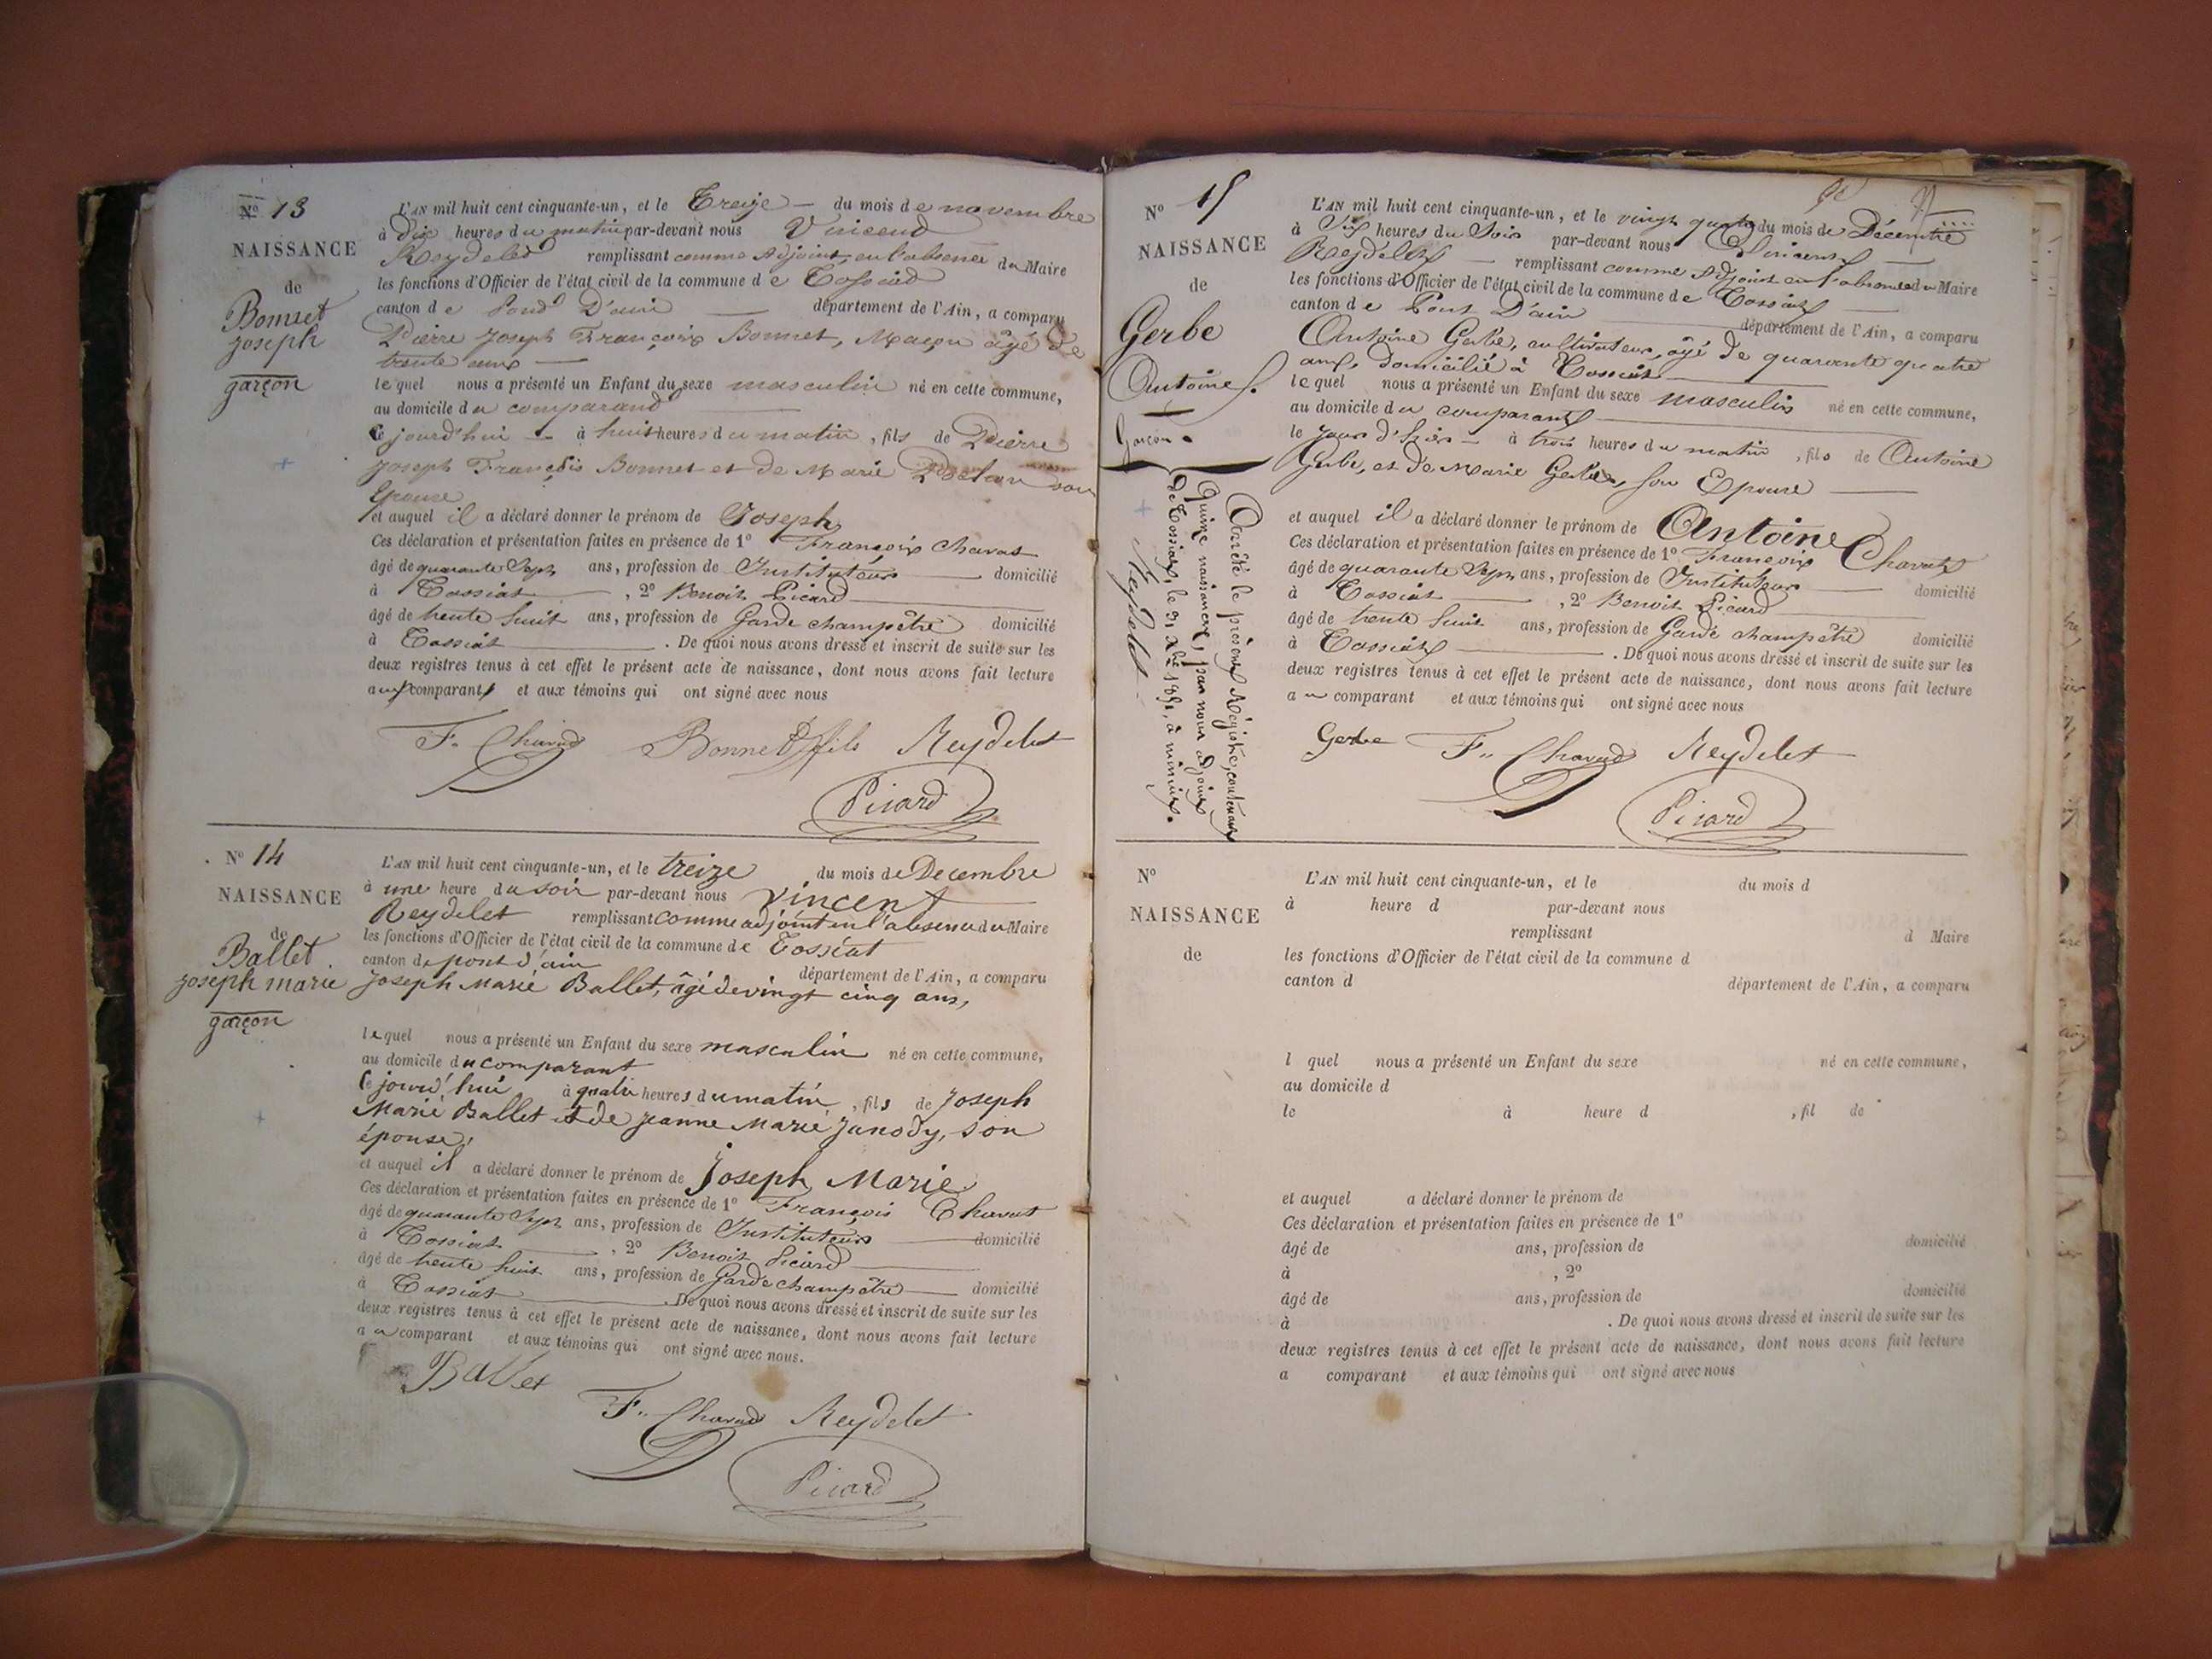 Nº 13
NAISSANCE
de
Bonnet
Joseph
garçon
L'AN mil huit cent cinquante-un, et le Treize — du mois de novembre
à dix heures du matin par-devant nous Vincend
Reydeled remplissant comme adjoint, en l'absence du Maire
les fonctions d'Officier de l'état civil de la commune de Tossiad
canton de Pond D'ain — département de l'Ain, a comparu
Pierre Joseph François Bonnet, Maçon âgé de
trente ans —
lequel nous a présenté un Enfant du sexe masculin né en cette commune,
au domicile du comparand —
Ce jourd'hui — à huit heures du matin, fils de Pierre
Joseph François Bonnet et de Marie son
Epouse
et auquel il a déclaré donner le prénom de Joseph
Ces déclaration et présentation faites en présence de 1º François Chavat
âgé de quarante Sept ans, profession de Instituteur — domicilié
à Tossiat —, 2º Benoit Picard —
âgé de trente huit ans, profession de Garde champêtre domicilié
à Tossiat — . De quoi nous avons dressé et inscrit de suite sur les
deux registres tenus à cet effet le présent acte de naissance, dont nous avons fait lecture
aux comparants et aux témoins qui ont signé avec nous
F. Chavad Bonnet fils Reydelet
Picard
Nº 14
NAISSANCE
de
Ballet
Joseph marie
garçon
L'AN mil huit cent cinquante-un, et le treize du mois de Decembre
à une heure du soir par-devant nous Vincent
Reydelet remplissant comme adjoint en l'absence du Maire
les fonctions d'Officier de l'état civil de la commune de Tossiat
canton de pont d'ain département de l'Ain, a comparu
Joseph Marie Ballet, âgé de vingt cinq ans,
lequel nous a présenté un Enfant du sexe masculin né en cette commune,
au domicile du comparant
Ce jourd'hui à quatre heures du matin, fils de Joseph
Marie Ballet et de Jeanne Marie Janody, son
épouse,
et auquel il a déclaré donner le prénom de Joseph Marie
Ces déclaration et présentation faites en présence de 1º François Chavat
âgé de quarante Sept ans, profession de Instituteur — domicilié
à Tossiat —, 2º Benoit Picard —
âgé de trente huit ans, profession de Garde champêtre — domicilié
à Tossiat — . De quoi nous avons dressé et inscrit de suite sur les
deux registres tenus à cet effet le présent acte de naissance, dont nous avons fait lecture
au comparant et aux témoins qui ont signé avec nous.
Ballet
F. Chavad Reydelet
Picard
Nº 15
NAISSANCE
de
Gerbe
Antoine
Garçon.
Arrêté le présent Régistre, contenant
Quinze naissances, par nous adjoint
de Tossiat, le 31 Xbre 1851, à minuit.
Reydelet
L'AN mil huit cent cinquante-un, et le vingt quatre du mois de Décembre
à Six heures du Soir par-devant nous Vincent —
Reydelet — remplissant comme adjoint en l'absence du Maire
les fonctions d'Officier de l'état civil de la commune de Tossiat —
canton de Pont D'ain — département de l'Ain, a comparu
Antoine Gerbe, cultivateur, âgé de quarante quatre
ans, domicilié à Tossiat —
lequel nous a présenté un Enfant du sexe masculin né en cette commune,
au domicile du comparant —
le jour d'hier — à trois heures du matin, fils de Antoine
Gerbe, et de Marie Gerbe, son Epouse —
et auquel il a déclaré donner le prénom de Antoine
Ces déclaration et présentation faites en présence de 1º François Chavat
âgé de quarante Sept ans, profession de Instituteur — domicilié
à Tossiat —, 2º Benoit Picard —
âgé de trente huit ans, profession de Garde champêtre domicilié
à Tossiat — . De quoi nous avons dressé et inscrit de suite sur les
deux registres tenus à cet effet le présent acte de naissance, dont nous avons fait lecture
au comparant et aux témoins qui ont signé avec nous
Gerbe F. Chavad Reydelet
Picard
Nº
NAISSANCE
de
L'AN mil huit cent cinquante-un, et le du mois d
à heure d par-devant nous
remplissant d Maire
les fonctions d'Officier de l'état civil de la commune d
canton d département de l'Ain, a comparu
l quel nous a présenté un Enfant du sexe né en cette commune,
au domicile d
le à heure d , fil de
et auquel a déclaré donner le prénom de
Ces déclaration et présentation faites en présence de 1º
âgé de ans, profession de domicilié
à , 2º
âgé de ans, profession de domicilié
à . De quoi nous avons dressé et inscrit de suite sur les
deux registres tenus à cet effet le présent acte de naissance, dont nous avons fait lecture
a comparant et aux témoins qui ont signé avec nous